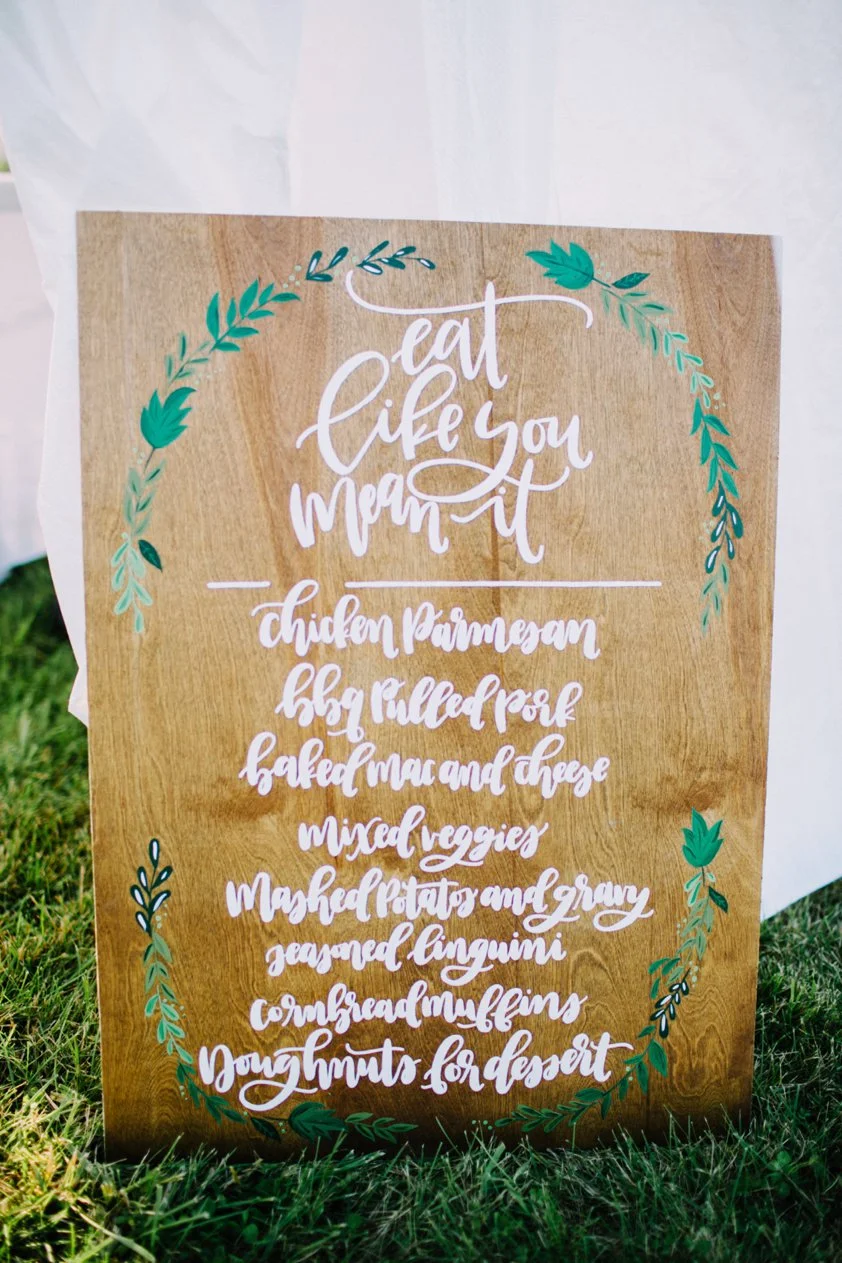 eat
like you
mean it
chicken Parmesan
bbq Pulled Pork
baked mac and cheese
mixed veggies
Mashed Potatos and gravy
seasoned linguini
cornbread muffins
Doughnuts for dessert